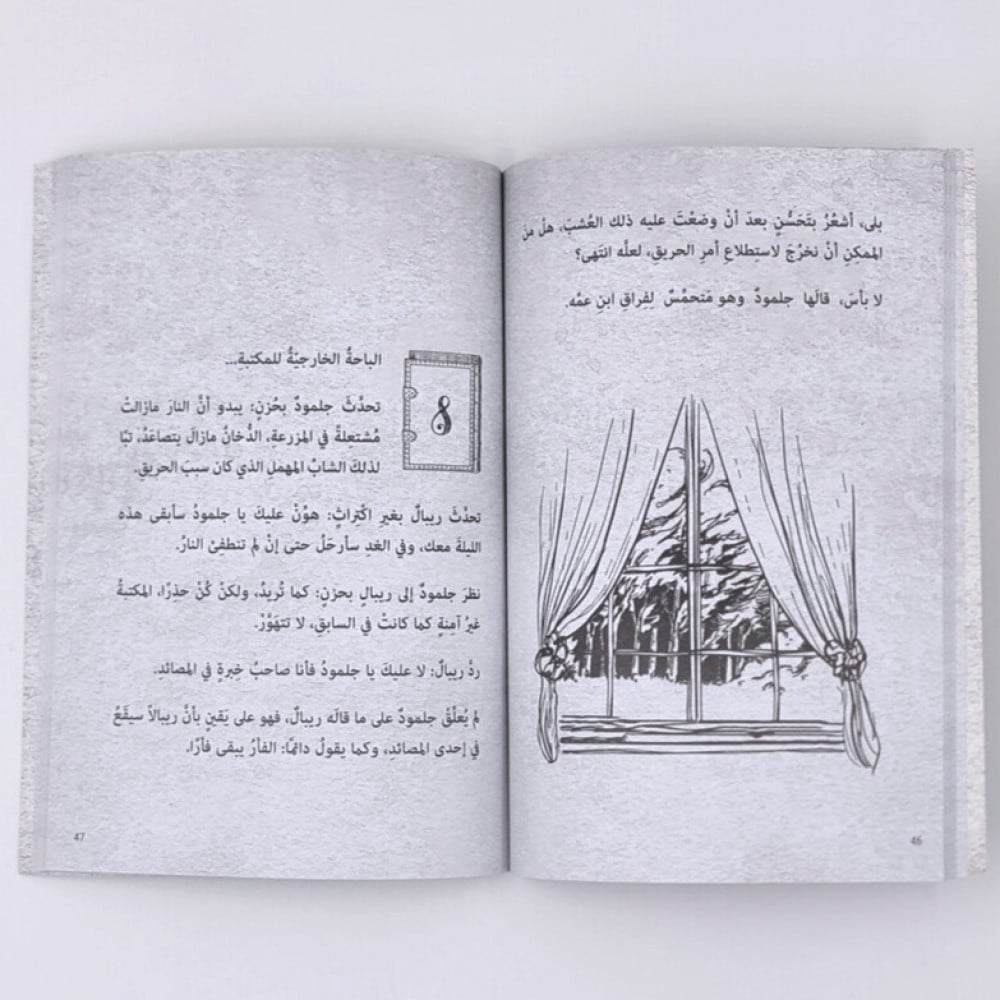 بلى، أشعُرُ بتَحَسُّنٍ بعدَ أنْ وضعْتَ عليه ذلك العُشبَ، هلْ من
الممكنِ أنْ نخرُجَ لاستِطلاعِ أمرِ الحريقِ، لعلَّه انتَهى؟
لا بأسَ، قالَها جلمودٌ وهو مُتحمِّسٌ لِفِراقِ ابنِ عمِّه.
46
الباحةُ الخارجيّةُ للمكتبةِ...
تحدَّثَ جلمودٌ بحُزنٍ: يبدو أنَّ النارَ مازالتْ
مُشتعلةً في المزرعةِ، الدُّخانُ مازالَ يتصاعَدُ، تبًا
لذلكَ الشابُ المهملِ الذي كان سببَ الحريقِ.
تحدَّثَ ريبالٌ بغيرِ اكْتراثٍ: هوِّنْ عليكَ يا جلمودُ سأبقى هذه
الليلةَ معك، وفي الغدِ سأرحَلُ حتى إنْ لم تنطفئْ النارُ.
نظرَ جلمودٌ إلى ريبالٍ بحزنٍ: كما تُريدُ، ولكنْ كُنْ حذِرًا، المكتبةُ
غيرُ آمِنةٍ كما كانتْ في السابقِ، لا تتهَوَّرْ.
ردَّ ريبالٌ: لا عليكَ يا جلمودُ فأنا صاحبُ خِبرةٍ في المصائدِ.
لم يُعلِّقْ جلمودٌ على ما قالَه ريبالٌ، فهو على يَقينٍ بأنَّ ريبالاً سيقَعُ
في إحدى المصائدِ، وكما يقولُ دائمًا: الفأرُ يبقى فأرًا.
47